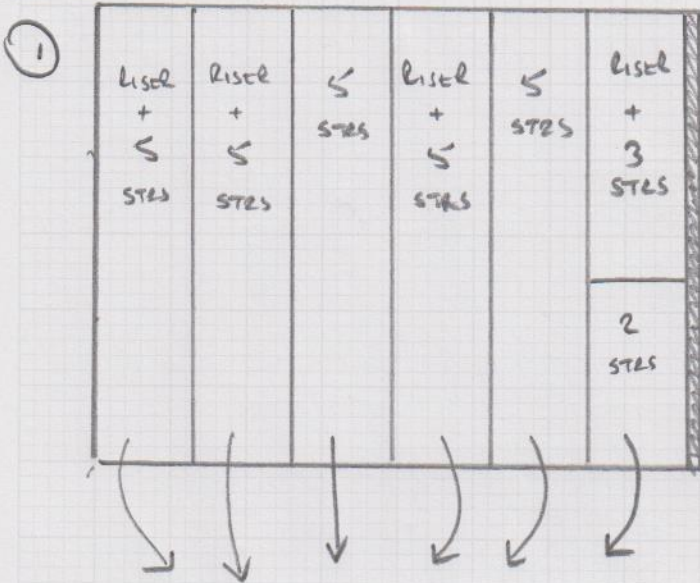 1
RISER
+
5
STRS
RISER
+
5
STRS
5
STRS
RISER
+
5
STRS
5
STRS
RISER
+
3
STRS
2
STRS